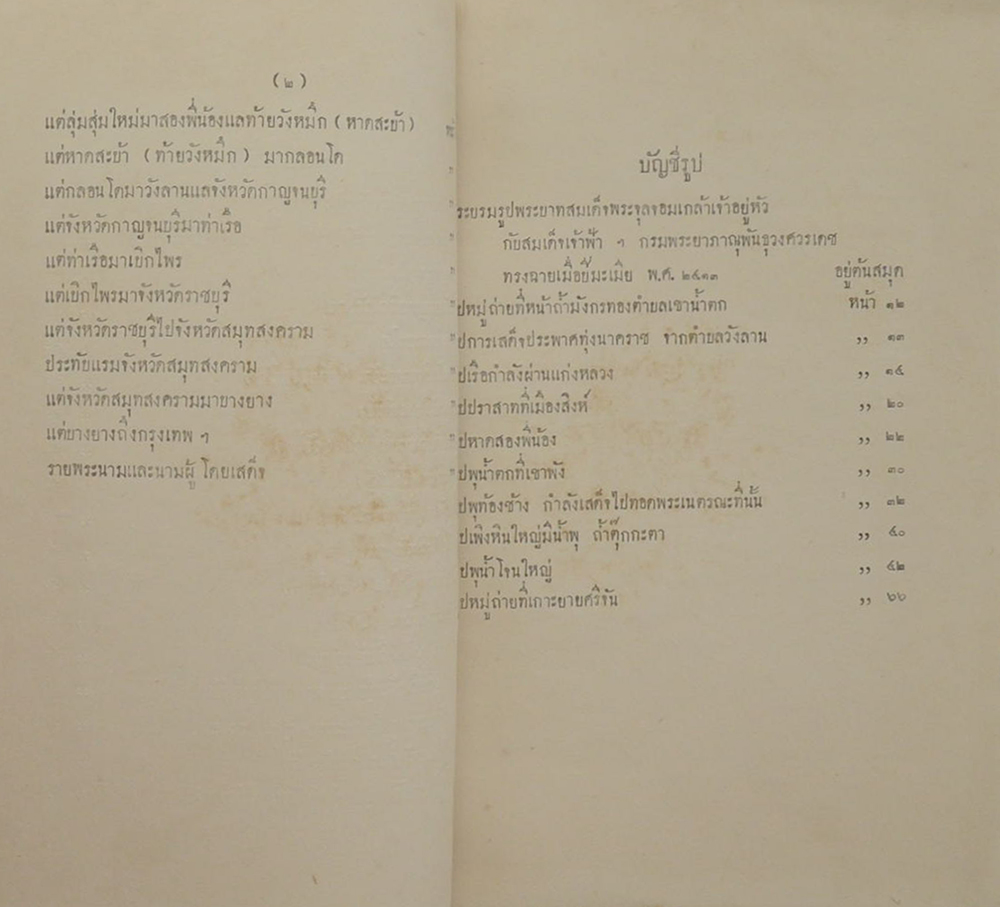 (๒)
แต่ลุ่มสุ่มใหม่มาสองพี่น้องแลท้ายวังหมึก (หาดสะย้า)
แต่หาดสะย้า (ท้ายวังหมึก) มากลอนโด
แต่กลอนโดมาวังลานแลจังหวัดกาญจนบุรี
แต่จังหวัดกาญจนบุรีมาท่าเรือ
แต่ท่าเรือมาเบิกไพร
แต่เบิกไพรมาจังหวัดราชบุรี
แต่จังหวัดราชบุรีไปจังหวัดสมุทสงคราม
ประทับแรมจังหวัดสมุทสงคราม
แต่จังหวัดสมุทสงครามมาบางยาง
แต่บางยางถึงกรุงเทพ ฯ
รายพระนามและนามผู้โดยเสด็จ
บัญชีรูป
ระบรมรูปพระบาทสมเด็จพระจุลจอมเกล้าเจ้าอยู่หัว
กับสมเด็จเจ้าฟ้า ฯ กรมพระยาภาณุพันธุวงศวรเดช
ทรงฉายเมื่อปีมะเมีย พ.ศ. ๒๔๑๓ อยู่ต้นสมุด
ปหมู่ถ่ายที่หน้าถ้ำมังกรทองตำบลเขาน้ำตก หน้า ๑๒
ปการเสด็จประพาศทุ่งนาคราช จากตำบลวังลาน ,, ๑๓
ปเรือกำลังผ่านแก่งหลวง ,, ๑๕
ปปราสาทที่เมืองสิงห์ ,, ๒๐
ปหาดสองพี่น้อง ,, ๒๒
ปพุน้ำตกที่เขาพัง ,, ๓๐
ปพุท้องช้าง กำลังเสด็จไปทอดพระเนตรณะที่นั้น ,, ๓๒
ปเพิงหินใหญ่มีน้ำพุ ถ้ำตุ๊กกะตา ,, ๔๐
ปพุน้ำโจนใหญ่ ,, ๔๒
ปหมู่ถ่ายที่เกาะยายศรีจัน ,, ๖๖